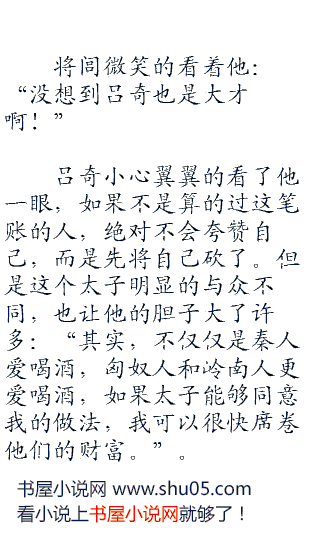 将闾微笑的看着他：
“没想到吕奇也是大才
啊！”
吕奇小心翼翼的看了他
一眼，如果不是算的过这笔
账的人，绝对不会夸赞自
己，而是先将自己砍了。但
是这个太子明显的与众不
同，也让他的胆子大了许
多：“其实，不仅仅是秦人
爱喝酒，匈奴人和岭南人更
爱喝酒，如果太子能够同意
我的做法，我可以很快席卷
他们的财富。”。
书屋小说网 www.shu05.com
看小说上书屋小说网就够了！